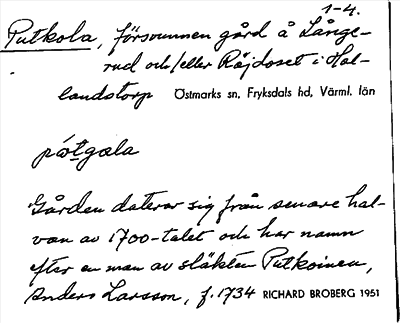 1-4.
Putkola, försvunnen gård å Långe-
rud och/eller Röjdoset i Hol-
landstorp Östmarks sn, Fryksdals hd, Värml. län
Gården daterar sig från senare hal-
van av 1700-talet och har namn
efter en man av släkten Putkoinen,
Anders Larsson, f. 1734 RICHARD BROBERG 1951